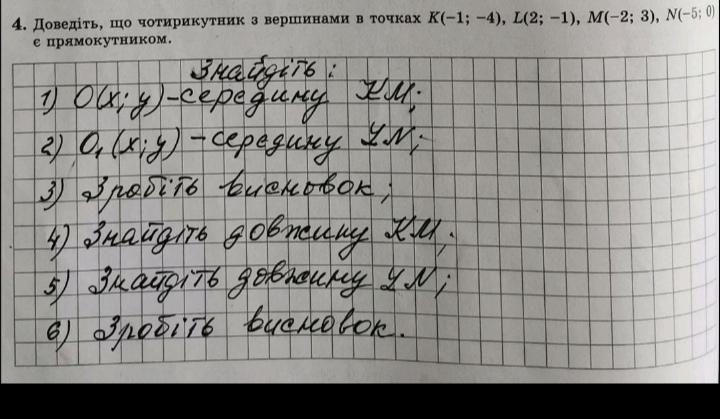 4. Доведіть, що чотирикутник з вершинами в точках K(−1; −4), L(2; −1), M(−2; 3), N(−5; 0)
є прямокутником.
Знайдіть:
1) O(x; y) – середину KM;
2) O₁(x; y) – середину LN;
3) Зробіть висновок;
4) Знайдіть довжину KM;
5) Знайдіть довжину LN;
6) Зробіть висновок.